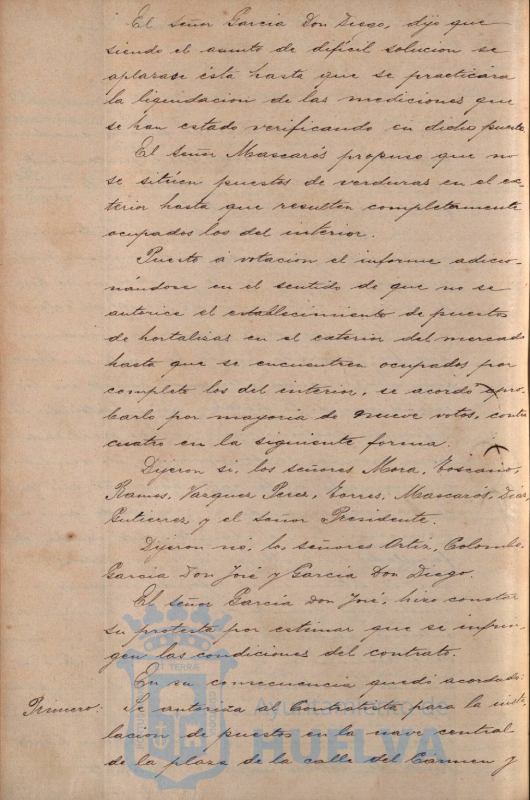 El señor García Don Diego, dijo que
siendo el asunto de dificil solucion se
aplazase ésta hasta que se practicára
la liquidacion de las mediciones que
se han estado verificando en dicho puesto
El señor Mascarós propuso que no
se sitúen puestos de verduras en el ex
terior hasta que resulten completamente
ocupados los del interior.
Puesto á votacion el informe adicio-
nándose en el sentido de que no se
autorice el establecimiento de puestos
de hortalizas en el exterior del mercado
hasta que se encuentren ocupados por
completo los del interior, se acordó apro-
barlo por mayoria de nueve votos, contra
cuatro en la siguiente forma.
Dijeron si, los señores Mora, Toscano,
Ramos, Vazquez Perez, Torres, Mascarós, Diaz,
Gutierrez, y el señor Presidente.
Dijeron nó, los señores Ortiz, Colombo,
Garcia Don José y Garcia Don Diego.
El señor García Don José, hizo constar
su protesta por estimar que se infrin-
gen las condiciones del contrato.
En su consecuencia quedó acordado:
Primero: Se autoriza al Contratista para la inst-
lacion de puestos en la nave central
de la plaza de la calle del Carmen y
Ayuntamiento de
HUELVA